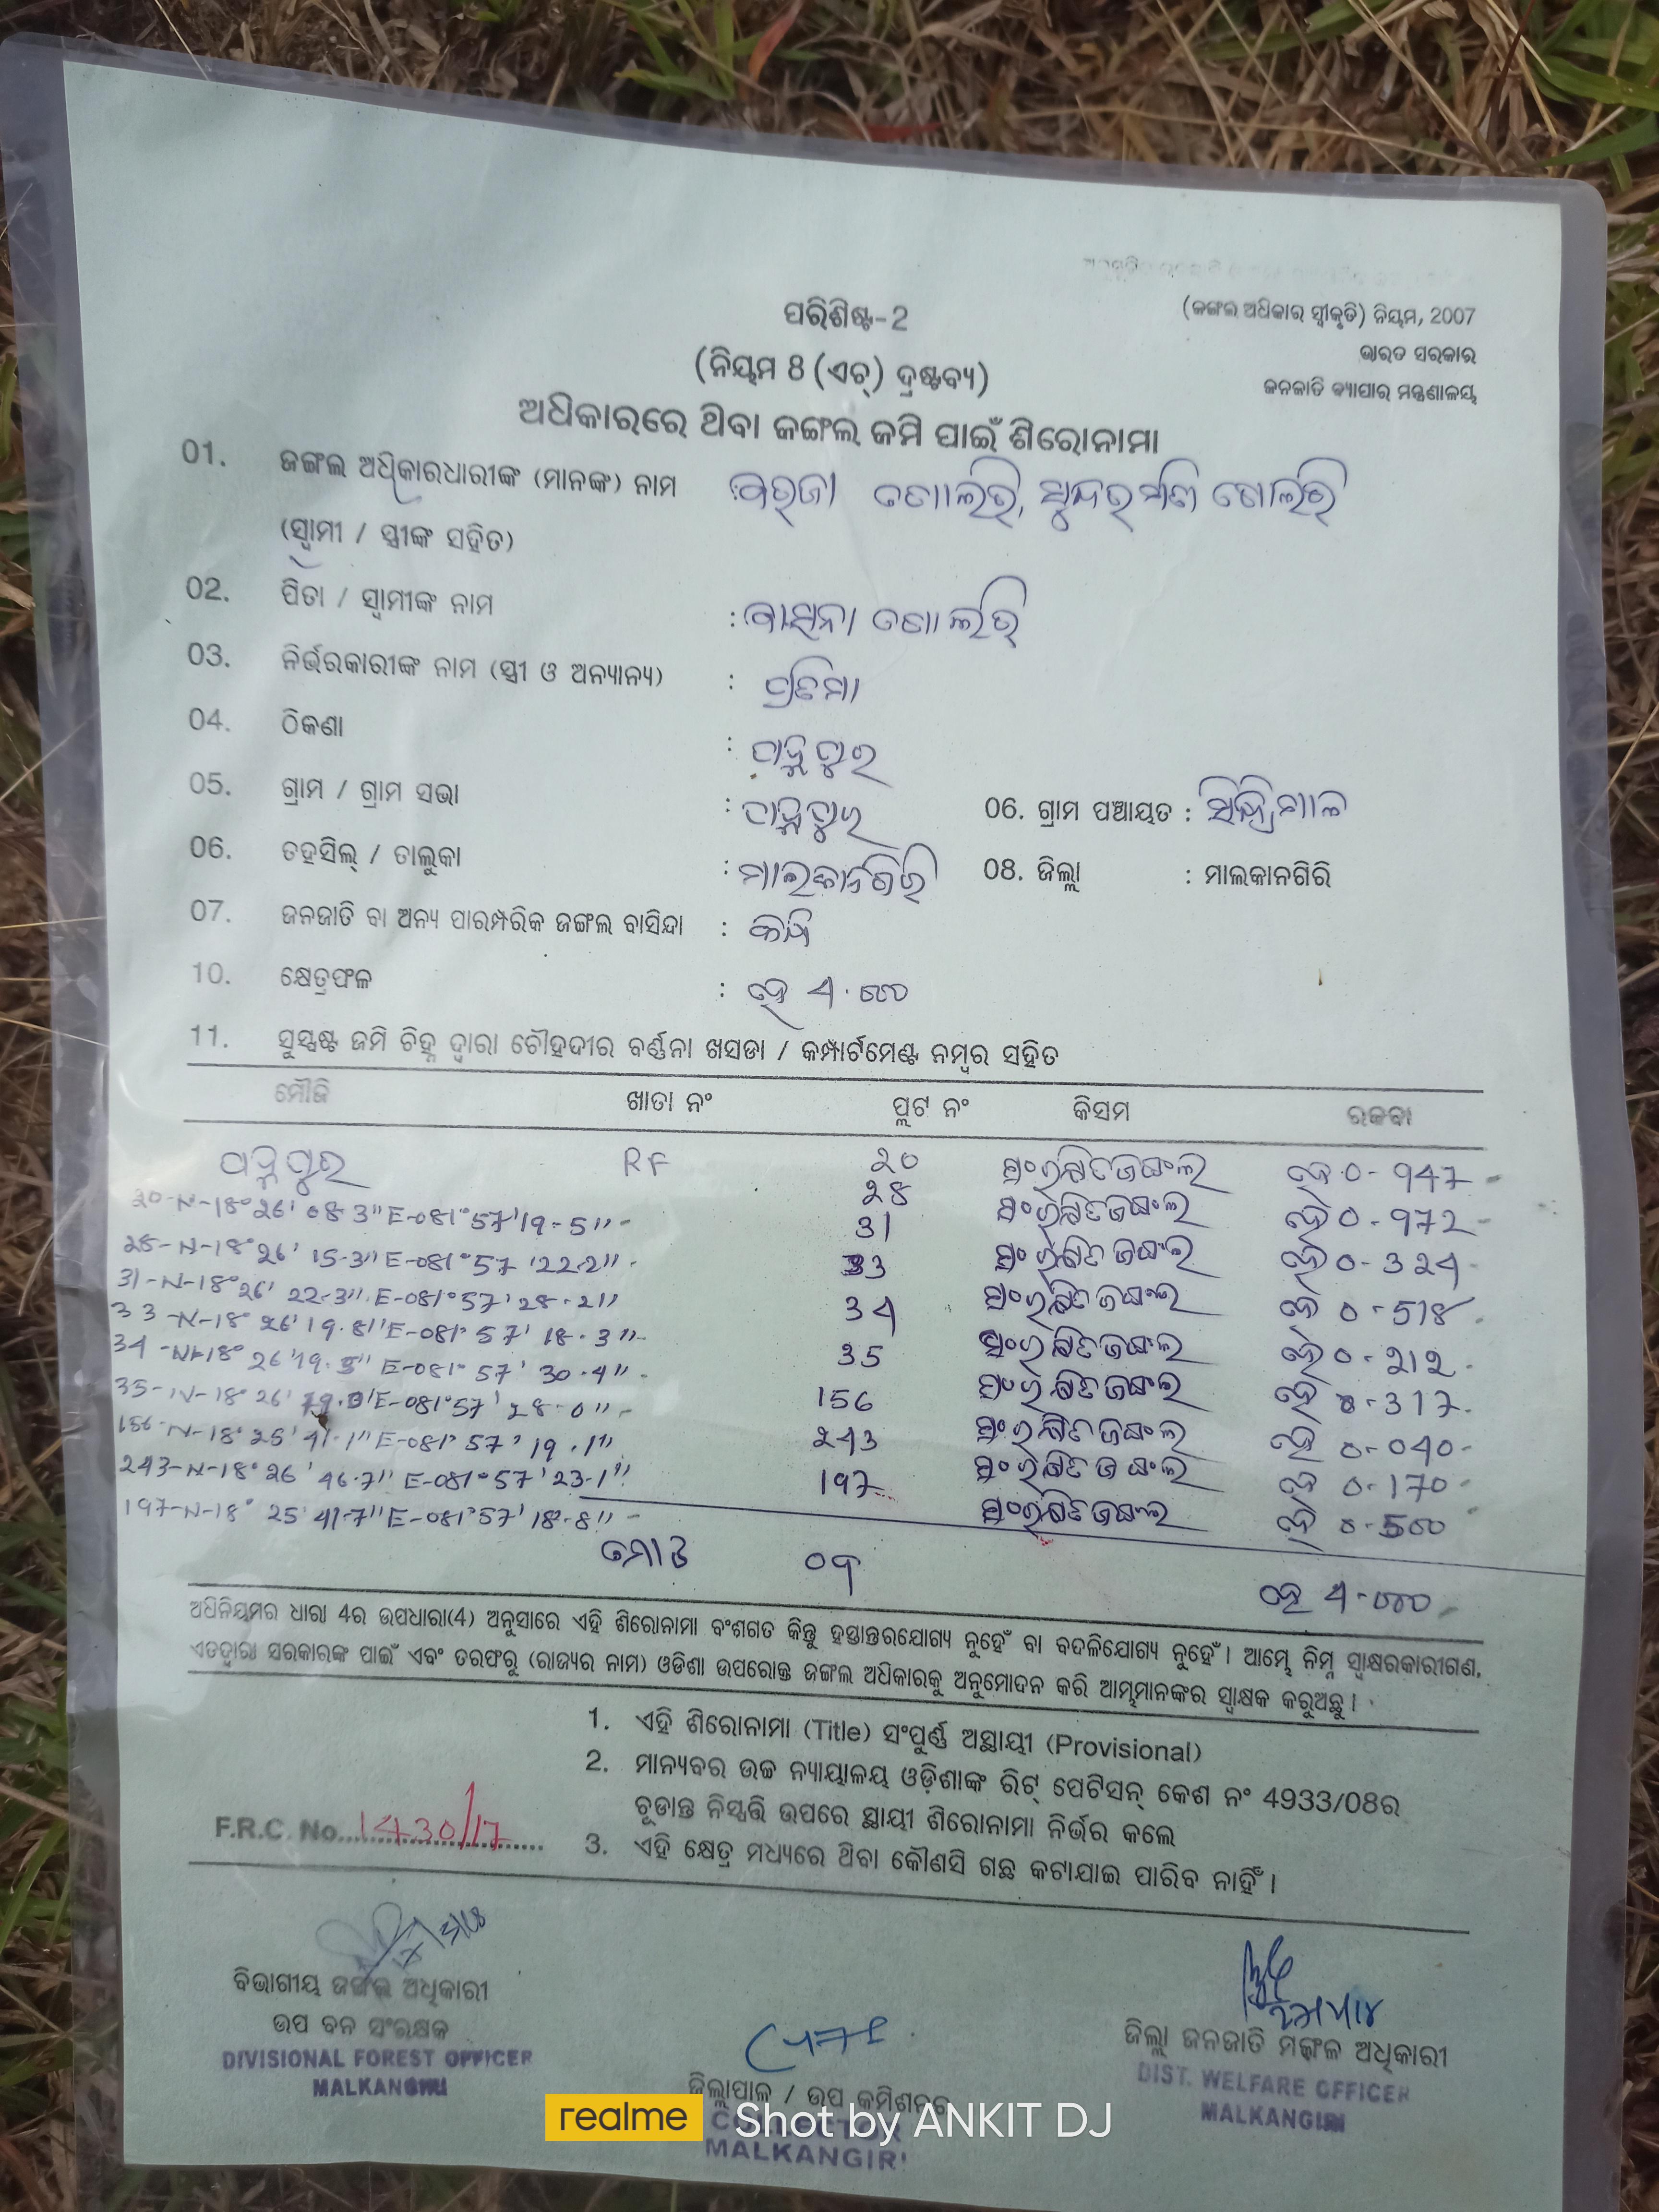 ପରିଶିଷ୍ଟ-2
(ଜଙ୍ଗଲ ଅଧିକାର ସ୍ୱୀକୃତି) ନିୟମ, 2007
ଭାରତ ସରକାର
ଜନଜାତି ବ୍ୟାପାର ମନ୍ତ୍ରଣାଳୟ
(ନିୟମ 8 (ଏଚ୍) ଦ୍ରଷ୍ଟବ୍ୟ)
ଅଧିକାରରେ ଥିବା ଜଙ୍ଗଲ ଜମି ପାଇଁ ଶିରୋନାମା
01. ଜଙ୍ଗଲ ଅଧିକାରଧାରୀଙ୍କ (ମାନଙ୍କ) ନାମ
(ସ୍ୱାମୀ / ସ୍ତ୍ରୀଙ୍କ ସହିତ)
02. ପିତା / ସ୍ୱାମୀଙ୍କ ନାମ :
03. ନିର୍ଭରକାରୀଙ୍କ ନାମ (ସ୍ତ୍ରୀ ଓ ଅନ୍ୟାନ୍ୟ) : ପ୍ରତିମା
04. ଠିକଣା :
05. ଗ୍ରାମ / ଗ୍ରାମ ସଭା : 06. ଗ୍ରାମ ପଞ୍ଚାୟତ :
06. ତହସିଲ୍ / ତାଲୁକା : ମାଲକାନଗିରି 08. ଜିଲ୍ଲା : ମାଲକାନଗିରି
07. ଜନଜାତି ବା ଅନ୍ୟ ପାରମ୍ପରିକ ଜଙ୍ଗଲ ବାସିନ୍ଦା :
10. କ୍ଷେତ୍ରଫଳ : ହେ 4.000
11. ସୁସ୍ପଷ୍ଟ ଜମି ଚିହ୍ନ ଦ୍ୱାରା ଚୌହଦୀର ବର୍ଣ୍ଣନା ଖସଡା / କମ୍ପାର୍ଟମେଣ୍ଟ ନମ୍ବର ସହିତ
ମୌଜି ଖାତା ନଂ ପ୍ଲଟ ନଂ କିସମ ରକବା
RF 20 ସଂରକ୍ଷିତ ଜଙ୍ଗଲ ହେ 0-947
20-N-18°26' 08.3" E-081°57'19-5" 28 ସଂରକ୍ଷିତ ଜଙ୍ଗଲ ହେ 0-972
28-N-18°26' 15-3" E-081°57'22.2" 31 ସଂରକ୍ଷିତ ଜଙ୍ଗଲ ହେ 0-324
31-N-18°26' 22-3" E-081°57'28-2" 33 ସଂରକ୍ଷିତ ଜଙ୍ଗଲ ହେ 0-518
33-N-18°26'19.8" E-081°57'18.3" 34 ସଂରକ୍ଷିତ ଜଙ୍ଗଲ ହେ 0-212
34-N-18°26'19.5" E-081°57'30.4" 35 ସଂରକ୍ଷିତ ଜଙ୍ଗଲ ହେ 0-317
35-N-18°26' E-081°57'28-0" 156 ସଂରକ୍ଷିତ ଜଙ୍ଗଲ ହେ 0-040
156-N-18°25'41.1" E-081°57'19.1" 243 ସଂରକ୍ଷିତ ଜଙ୍ଗଲ ହେ 0-170
243-N-18°26'46.7" E-081°57'23-1" 197 ସଂରକ୍ଷିତ ଜଙ୍ଗଲ ହେ 0-500
197-N-18°25'41.7" E-081°57'18.8"
ମୋଟ ୦୯ ହେ 4-000
ଅଧିନିୟମର ଧାରା 4ର ଉପଧାରା(4) ଅନୁସାରେ ଏହି ଶିରୋନାମା ବଂଶଗତ କିନ୍ତୁ ହସ୍ତାନ୍ତରଯୋଗ୍ୟ ନୁହେଁ ବା ବଦଳିଯୋଗ୍ୟ ନୁହେଁ। ଆମ୍ଭେ ନିମ୍ନ ସ୍ୱାକ୍ଷରକାରୀଗଣ,
ଏତଦ୍ୱାରା ସରକାରଙ୍କ ପାଇଁ ଏବଂ ତରଫରୁ (ରାଜ୍ୟର ନାମ) ଓଡିଶା ଉପରୋକ୍ତ ଜଙ୍ଗଲ ଅଧିକାରକୁ ଅନୁମୋଦନ କରି ଆମ୍ଭମାନଙ୍କର ସ୍ୱାକ୍ଷକ କରୁଅଛୁ।
1. ଏହି ଶିରୋନାମା (Title) ସଂପୂର୍ଣ୍ଣ ଅସ୍ଥାୟୀ (Provisional)
2. ମାନ୍ୟବର ଉଚ୍ଚ ନ୍ୟାୟାଳୟ ଓଡ଼ିଶାଙ୍କ ରିଟ୍ ପେଟିସନ୍ କେଶ ନଂ 4933/08ର
ଚୂଡାନ୍ତ ନିସ୍ପତ୍ତି ଉପରେ ସ୍ଥାୟୀ ଶିରୋନାମା ନିର୍ଭର କଲେ
F.R.C. No. 1430/17
3. ଏହି କ୍ଷେତ୍ର ମଧ୍ୟରେ ଥିବା କୌଣସି ଗଛ କଟାଯାଇ ପାରିବ ନାହିଁ।
ବିଭାଗୀୟ ଜଙ୍ଗଲ ଅଧିକାରୀ
ଉପ ବନ ସଂରକ୍ଷକ
DIVISIONAL FOREST OFFICER
MALKANGIRI
ଜିଲ୍ଲାପାଳ / ଉପ କମିଶନର
COLLECTOR
MALKANGIRI
ଜିଲ୍ଲା ଜନଜାତି ମଙ୍ଗଳ ଅଧିକାରୀ
DIST. WELFARE OFFICER
MALKANGIRI
realme Shot by ANKIT DJ